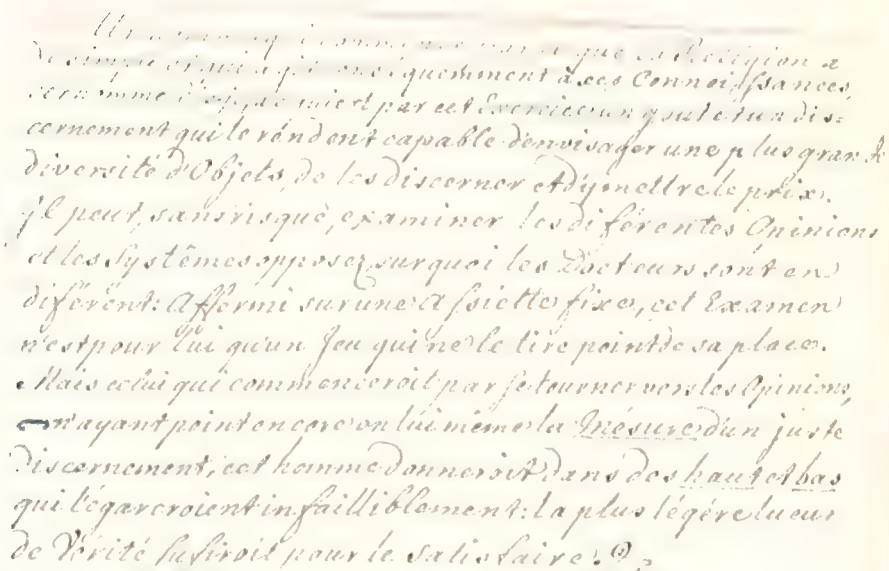 Un homme qui commence par ce que la Religion a
de simple et qui agit conséquemment à ces Connoissances,
cet homme acquiert par cet Exercice un gout et un dis=
cernement qui le rendent capable d'envisager une plus grande
diversité d'Objets, de les discerner et d'y mettre le prix.
Il peut, sans risque, examiner les diférentes Opinions
et les Systêmes opposez, sur quoi les Docteurs sont en
diférent: Affermi sur une Assiette fixe, cet Examen
n'est pour lui qu'un Jeu qui ne le tire point de sa place.
Mais celui qui commenceroit par se tourner vers les Opinions,
n'ayant point encore en lui même la Mésure d'un juste
Discernement, cet homme donneroit dans des haut et bas
qui l'égareroient infailliblement: la plus légére lueur
de Vérité sufiroit pour le satisfaire.